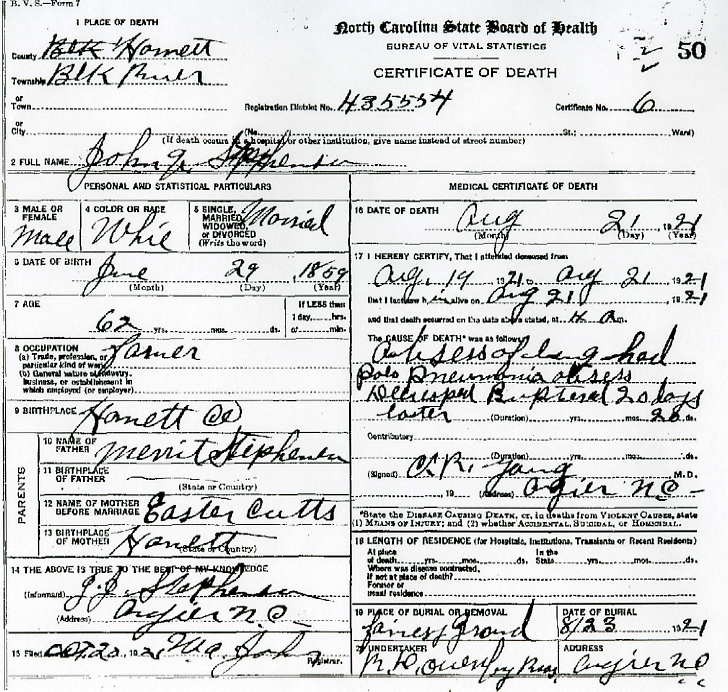 B. V. S.—Form 7
1 PLACE OF DEATH
County Harnett
Township Blk River
or
Town
or
City
North Carolina State Board of Health
BUREAU OF VITAL STATISTICS
CERTIFICATE OF DEATH
50
Registration District No. 435554 Certificate No. 6
(No. St.; Ward)
(If death occurs in a hospital or other institution, give name instead of street number)
2 FULL NAME John Stephenson
PERSONAL AND STATISTICAL PARTICULARS
3 MALE OR FEMALE Male
4 COLOR OR RACE Whie
5 SINGLE, MARRIED, WIDOWED, or DIVORCED (Write the word) Married
6 DATE OF BIRTH June 29, 1859
(Month) (Day) (Year)
7 AGE 62 yrs. mos. ds.
If LESS than 1 day, hrs. or min.
8 OCCUPATION Farmer
(a) Trade, profession, or particular kind of work
(b) General nature of industry, business, or establishment in which employed (or employer).
9 BIRTHPLACE Harnett Co
PARENTS
10 NAME OF FATHER Merrit Stephenson
11 BIRTHPLACE OF FATHER
(State or Country)
12 NAME OF MOTHER BEFORE MARRIAGE Easter Cutts
13 BIRTHPLACE OF MOTHER Harnett
(State or Country)
14 THE ABOVE IS TRUE TO THE BEST OF MY KNOWLEDGE
(Informant) J. J. Stephenson
(Address) Angier N.C.
15 Filed 192 Registrar.
MEDICAL CERTIFICATE OF DEATH
16 DATE OF DEATH Aug 21 1921
(Month) (Day) (Year)
17 I HEREBY CERTIFY, That I attended deceased from
Aug. 19 1921, to Aug 21 1921
that I last saw him alive on Aug 21 1921
and that death occurred on the date above stated, at 4 a m.
The CAUSE OF DEATH* was as follows:
Absess of lung had
Pneumonia absess
20 days
later (Duration) yrs. mos. 20 ds.
Contributory
(Duration) yrs. mos. ds.
(Signed) C. R. Young M.D.
19 (Address) Angier N.C.
*State the DISEASE CAUSING DEATH, or, in deaths from VIOLENT CAUSES, state
(1) MEANS OF INJURY; and (2) whether ACCIDENTAL, SUICIDAL, or HOMICIDAL.
18 LENGTH OF RESIDENCE (for Hospitals, Institutions, Transients or Recent Residents)
At place of death yrs. mos. ds. In the State yrs. mos. ds.
Where was disease contracted, if not at place of death?
Former or usual residence
19 PLACE OF BURIAL OR REMOVAL
DATE OF BURIAL
8/23 1921
20 UNDERTAKER
ADDRESS
Angier N.C.